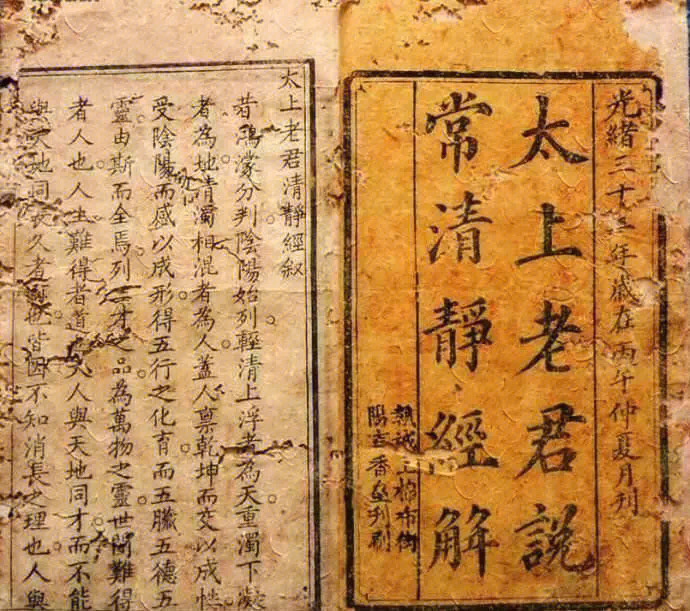 光緒三十年歲在丙午仲夏月刊
太上老君說
常清靜經解
誠上棉布街
陽香刊刷
太上老君清靜經叙
昔鴻濛分判陰陽始列輕清上浮者為天重濁下凝
者為地清濁相混者為人蓋人禀乾坤而交以成性
受陰陽而感以成形得五行之化育而五臟五德五
靈由斯而全焉列三才之品為萬物之靈世間難得
者人也人生難得者道人與天地同才而不能
與天地同長久者何也皆因不知消長之理也人與